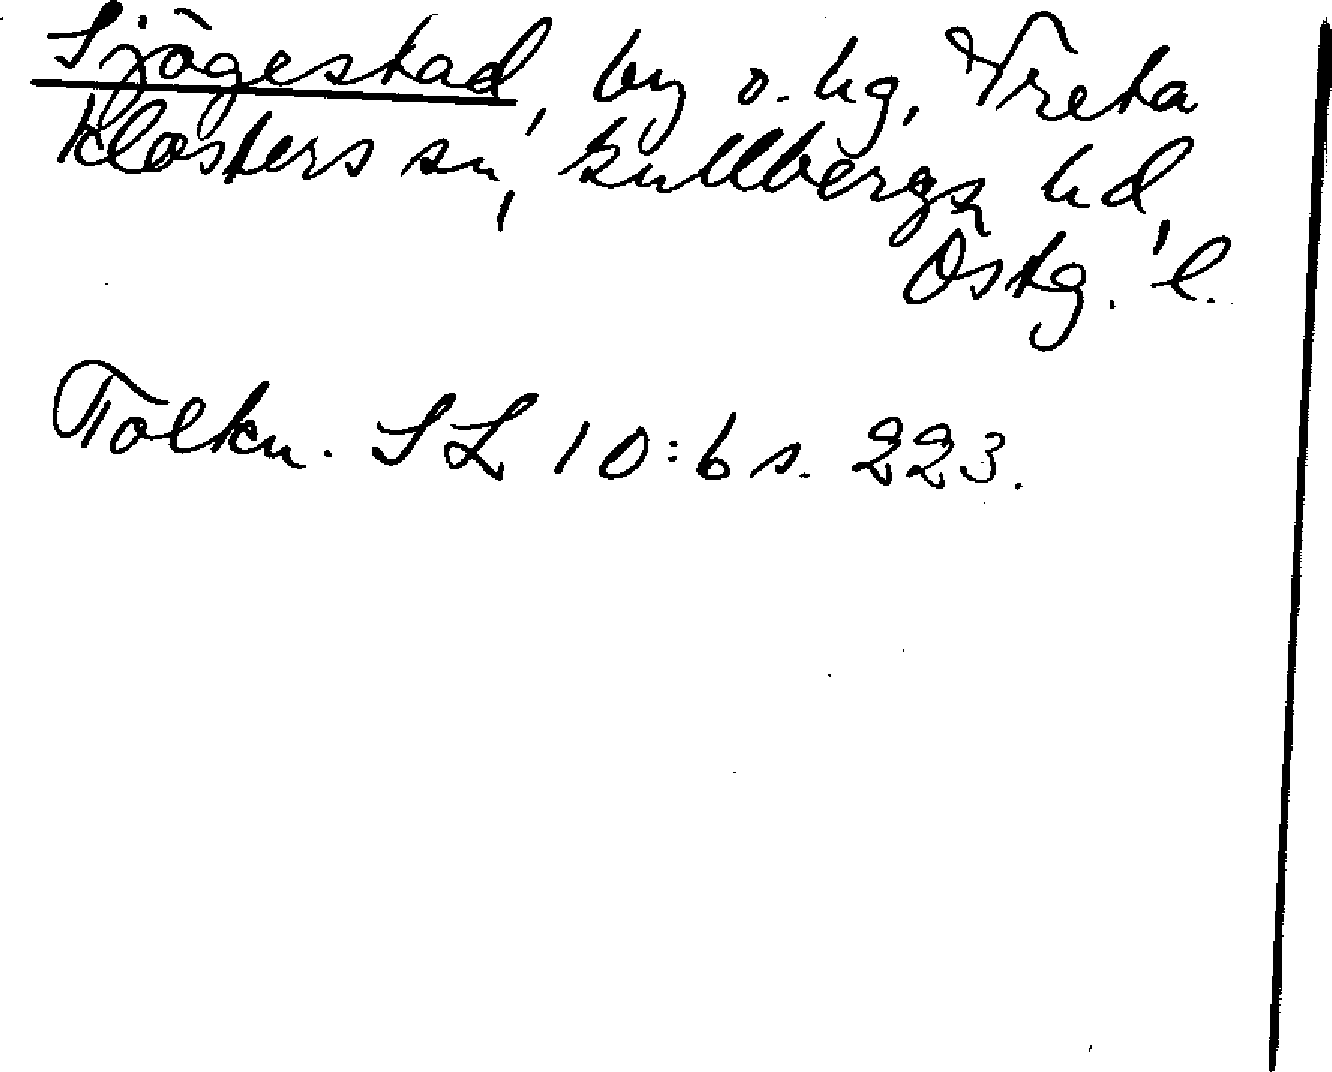 Sjögestad, by o. hg, Vreta
Klosters sn, Gullbergs hd,
Östg. l.
Tolkn. SL 10:6 s. 223.